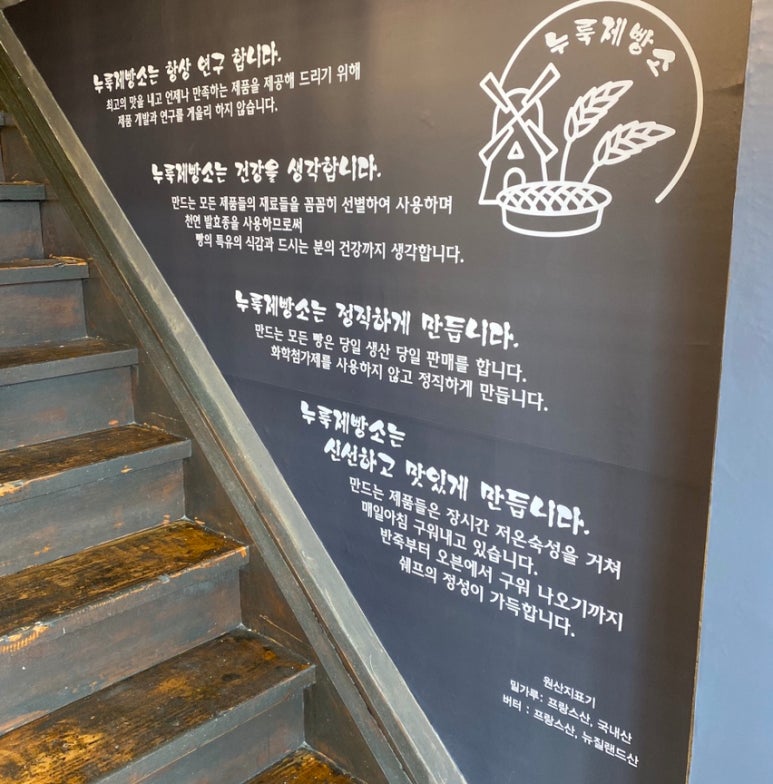 누룩제빵소
누룩제빵소는 항상 연구 합니다.
최고의 맛을 내고 언제나 만족하는 제품을 제공해 드리기 위해
제품 개발과 연구를 게을리 하지 않습니다.
누룩제빵소는 건강을 생각합니다.
만드는 모든 제품들의 재료들을 꼼꼼히 선별하여 사용하며
천연 발효종을 사용하므로써
빵의 특유의 식감과 드시는 분의 건강까지 생각합니다.
누룩제빵소는 정직하게 만듭니다.
만드는 모든 빵은 당일 생산 당일 판매를 합니다.
화학첨가제를 사용하지 않고 정직하게 만듭니다.
누룩제빵소는
신선하고 맛있게 만듭니다.
만드는 제품들은 장시간 저온숙성을 거쳐
매일아침 구워내고 있습니다.
반죽부터 오븐에서 구워 나오기까지
쉐프의 정성이 가득합니다.
원산지표기
밀가루: 프랑스산, 국내산
버터 : 프랑스산, 뉴질랜드산